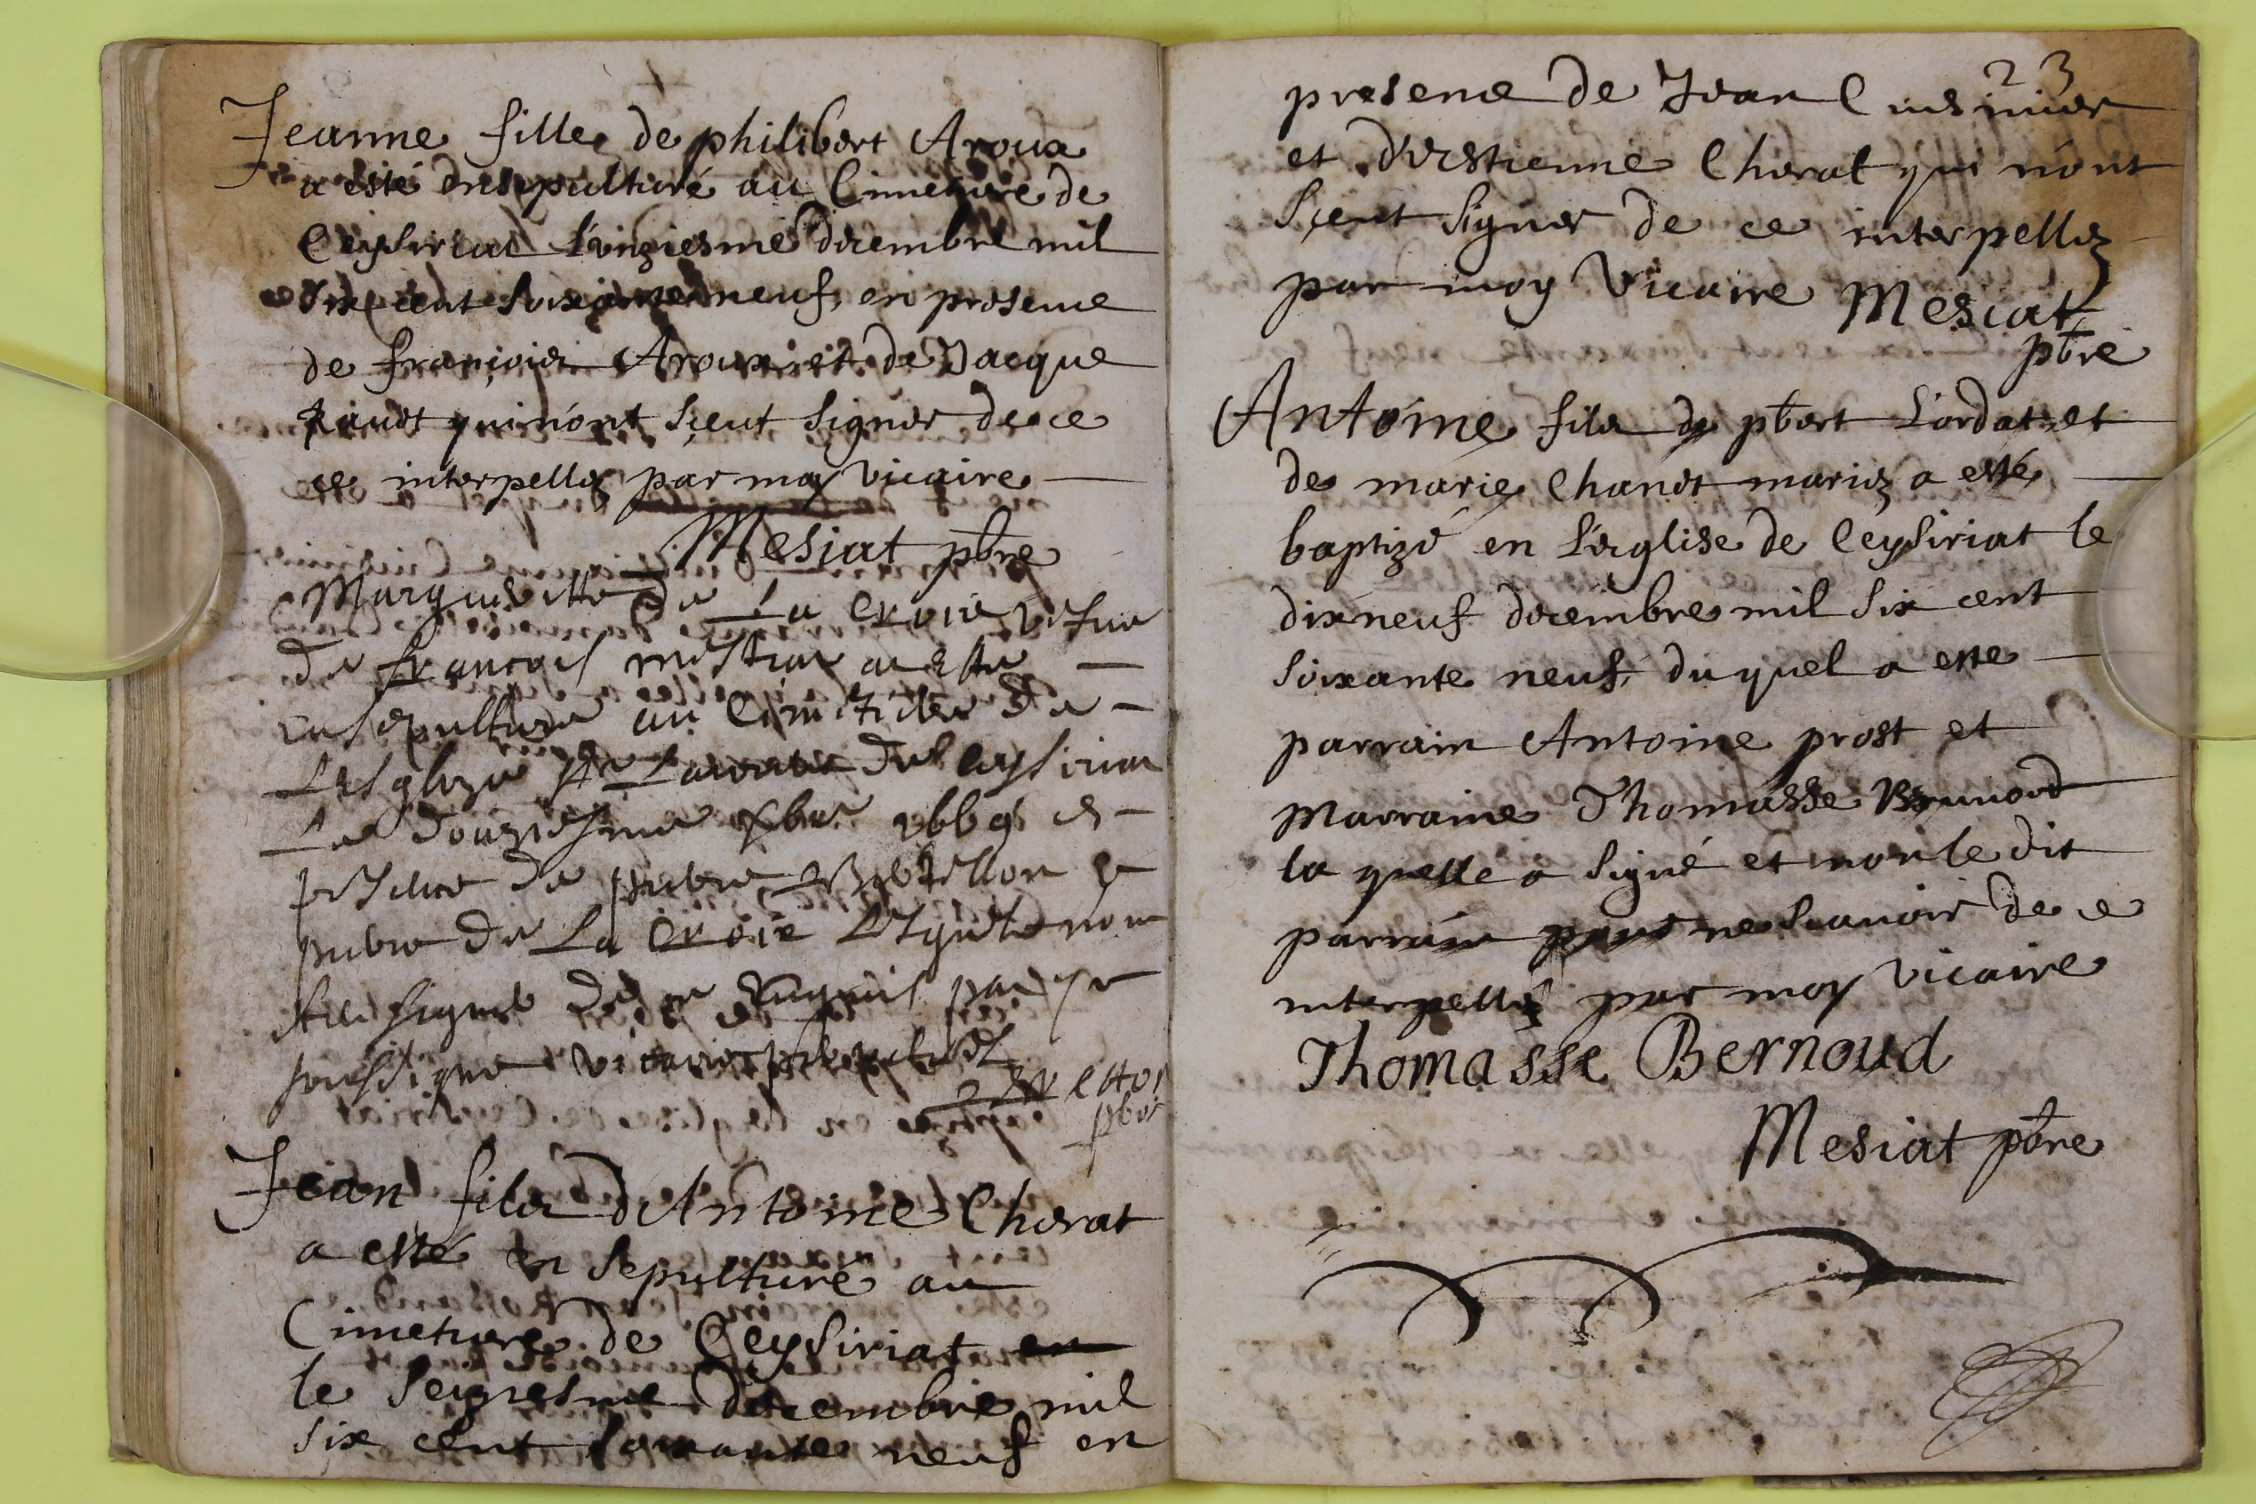 Jeanne fille de philibert Aroux
a esté ensepulturé au Cimetiere de
Ceysiriat L'onziesme decembre mil
six cent soixante neuf, en presence
de françois Aroux et de Jacque
qui n'ont sçeut signer de ce
ce interpellez par moy vicaire
Mesiat pbre
Margueritte De La Croix vefve
De françois mestrar a este
ensepulturé au Cimetiere De
Lesglize De Ceysiriat
Le Douziesme xbre 1669 en
presence De pierre &
pierre De La Croix Lesquels nont
sceu signer De ce enquis par je
soussigné vicaire
pbre
Jean fils d'Antoine Cherat
a esté en sepulturé au
Cimetiere de Ceysiriat en
le seiziesme decembre mil
six cent soixante neuf en
23
presence de Jean Cusinier
et d'Estienne Cherat qui n'ont
sçeut signer de ce interpellez
par moy vicaire Mesiat
pbre
Antoine fils de pbert Lordat et
de marie Chanet mariez a esté
baptizé en L'eglise de Ceysiriat le
dixneuf decembre mil six cent
soixante neuf, du quel a este
parrain Antoine prost et
marraine Thomasse Bernoud
la quelle a signé et non le dit
parrain pour ne scauoir de ce
interpellé par moy vicaire
Thomasse Bernoud
Mesiat pbre